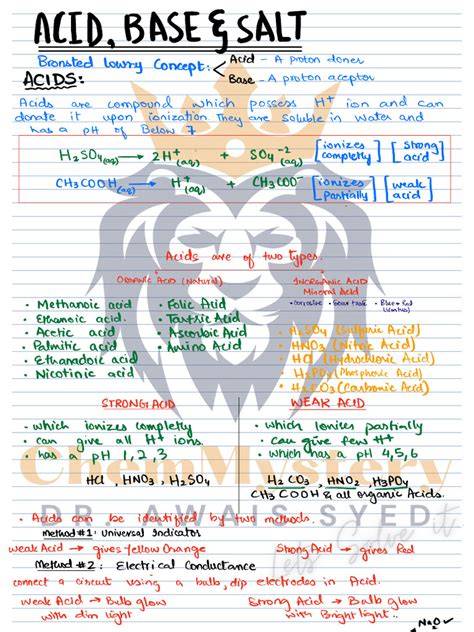 ACID, BASE & SALT
Bronsted lowry Concept: Acid - A proton doner
Base - A proton acceptor
ACIDS:
Acids are compound which possess H+ ion and can
donate it upon ionization They are soluble in water and
has a pH of Below 7
H2SO4(aq) → 2H+(aq) + SO4-2(aq) [ionizes completly] [strong acid]
CH3COOH(aq) → H+(aq) + CH3COO- [ionizes Partially] [weak acid]
Acids are of two types.
ORGANIC ACID (Natural)
INORGANIC ACID
Mineral Acid
• Corrosive • Sour taste • Blue → Red
(litmus)
• Methanoic acid • Folic Acid
• Ethanoic acid • Tartaric Acid
• Acetic acid • Ascorbic Acid
• Palmitic acid • Amino Acid
• Ethanadoic acid
• Nicotinic acid
• H2SO4 (Sulphuric Acid)
• HNO3 (Nitric Acid)
• HCl (Hydrochloric Acid)
• H3PO4 (Phosphoric Acid)
• H2CO3 (Carbonic Acid)
STRONG ACID
• which ionizes completly
• can give all H+ ions.
• has a pH 1, 2, 3
HCl , HNO3 , H2SO4
WEAK ACID
• which Ionizes partially
• Can give few H+
• which has a pH 4,5,6
H2CO3, HNO2, H3PO4
CH3COOH & all organic Acids.
ChemMystery
DR. AWAIS SYED
Lets Solve it
• Acids can be identified by two methods.
Method #1: Universal Indicator
weak Acid → gives Yellow Orange Strong Acid → gives Red
Method #2: Electrical Conductance
connect a circuit using a bulb, dip electrodes in Acid.
weak Acid → Bulb glow Strong Acid → Bulb glow
with dim light with Bright light..
Na2O ✓